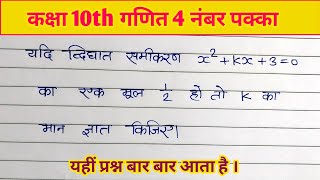 कक्षा 10th गणित 4 नंबर पक्का
यदि द्विघात समीकरण x² + kx + 3 = 0
का एक मूल 1/2 हो तो k का
मान ज्ञात किजिए
यहीं प्रश्न बार बार आता है ।